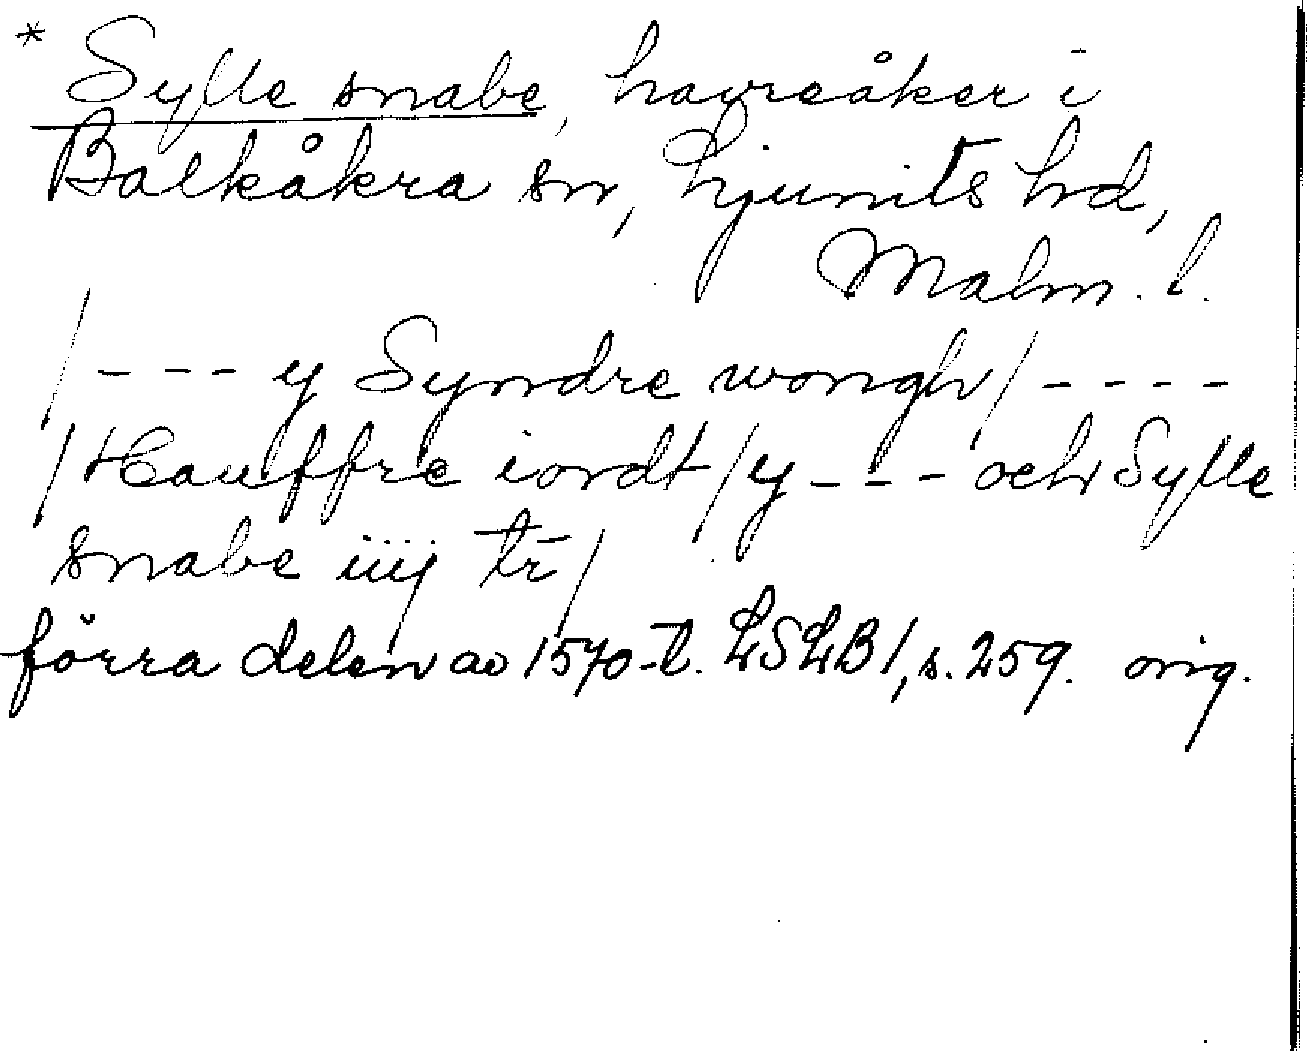 * Sylle snabe, havreåker i
Balkåkra sn, Ljunits hd,
Malm. l.
/--- y Syndre wongh/----
/Hauffre iordt/y --- och Sylle
snabe iiij tr̄/
förra delen av 1570-t. LSLB 1, s. 259. orig.